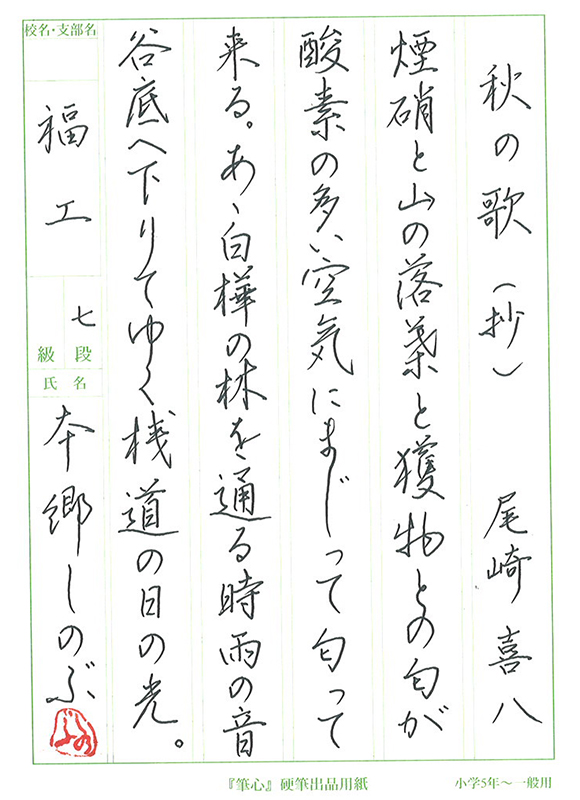 秋の歌(抄) 尾崎喜八
煙硝と山の落葉と獲物との匂が
酸素の多い空気にまじって匂って
来る。あゝ白樺の林を通る時雨の音
谷底へ下りてゆく桟道の日の光。
校名・支部名
福工
七
級 段
氏 名
本郷しのぶ
『筆心』硬筆出品用紙
小学5年〜一般用